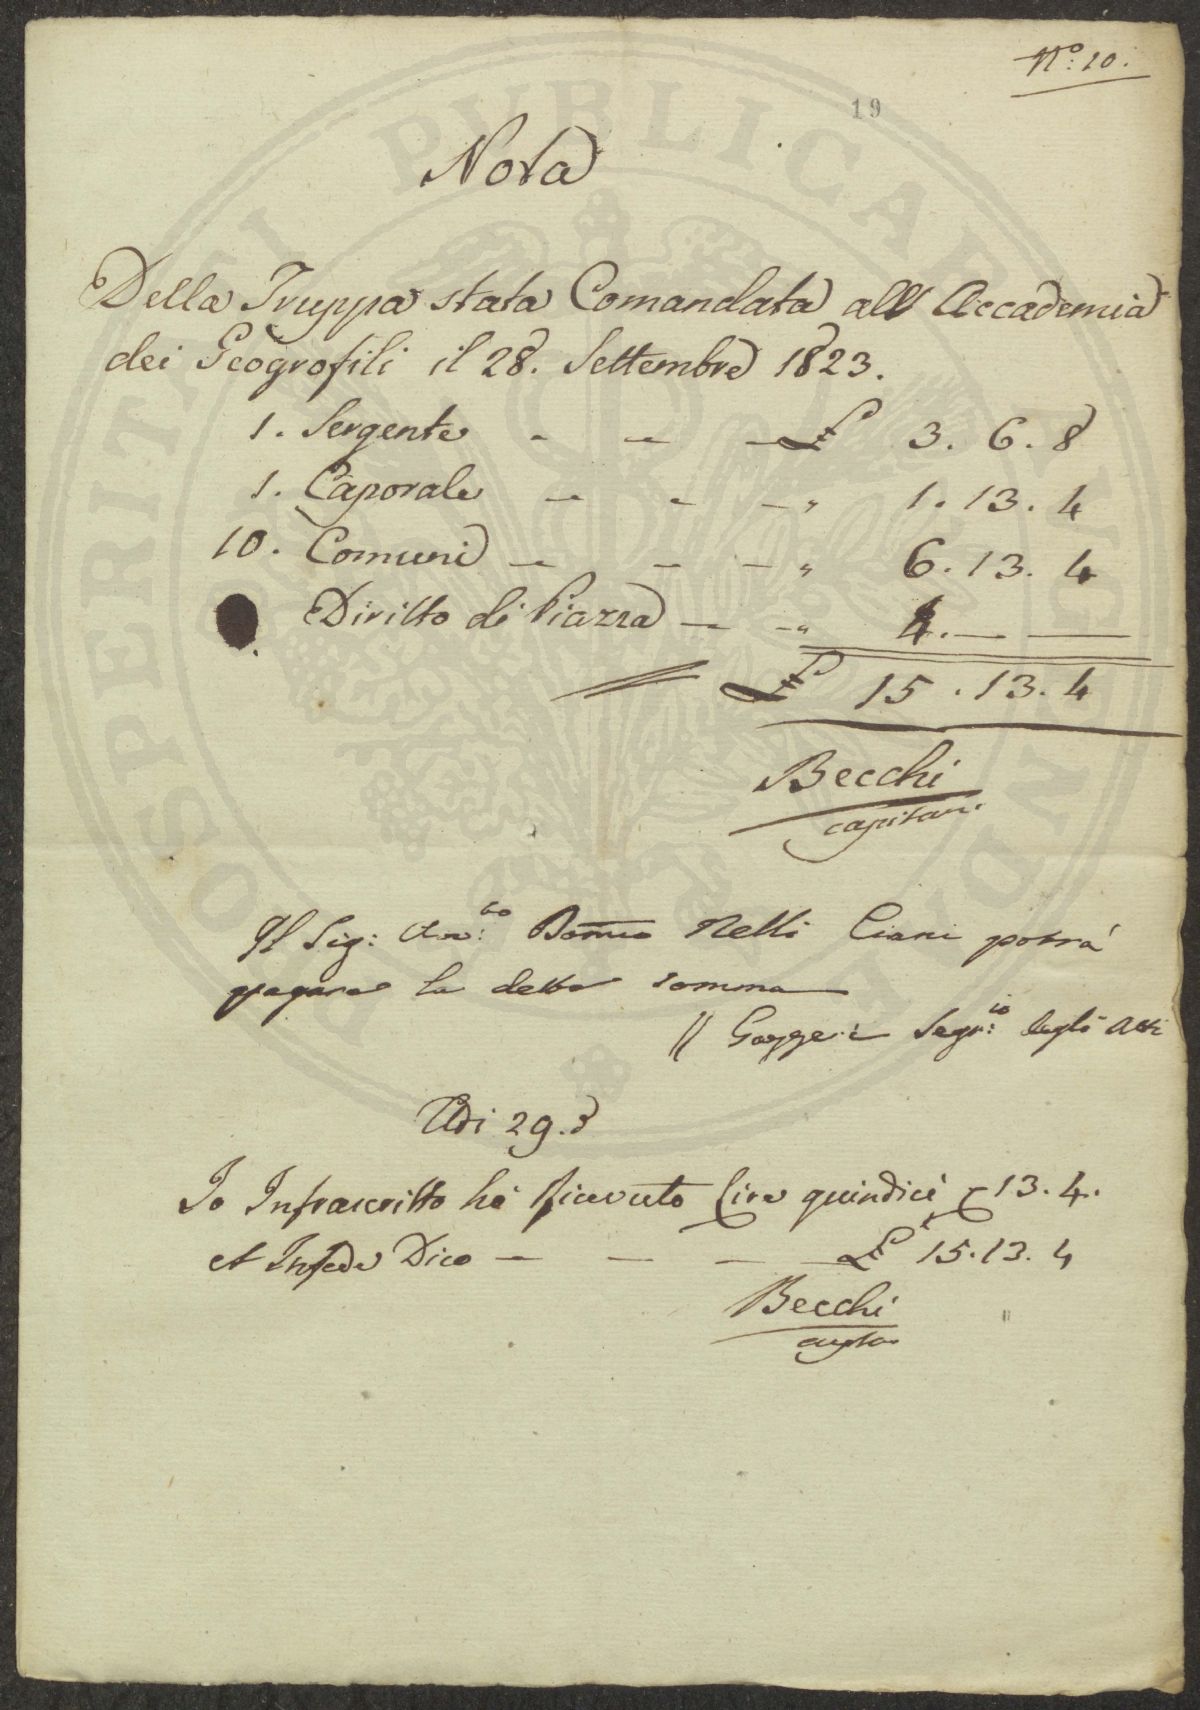 N.o: 10.
19
Nota
Della Truppa stata Comandata all' Accademia
dei Geogrofili il 28. Settembre 1823.
1. Sergente - - - £ 3. 6. 8
1. Caporale - - - " 1. 13. 4
10. Comuni - - - " 6. 13. 4
Diritto di Piazza - - " 4. — —
£ 15. 13. 4
Becchi
capitan
Il Sig: Nelli Ciani potrà
pagare la detta somma
Gazzeri Segr:io degli Atti
Adi 29. d
Io Infrascritto hò Ricevuto Lire quindici 13. 4.
et Infede Dico - - - £ 15. 13. 4
Becchi
PROSPERITATI PUBLICAE AUGENDAE